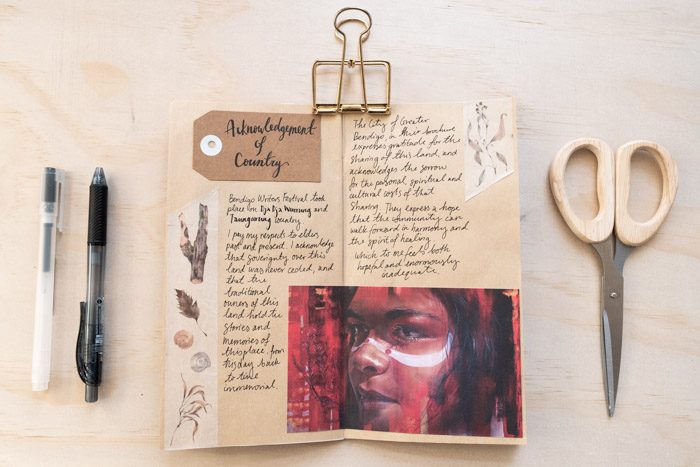 Acknowledgement
of
Country
Bendigo Writers Festival took
place on Dja Dja Wurrung and
Taungurung Country.
I pay my respects to elders
past and present. I acknowledge
that sovereignty over this
land was never ceded, and
that the
traditional
owners of this
land hold the
stories and
memories of
this place, from
this day back
to time
immemorial.
The City of Greater
Bendigo, in their brochure
expresses gratitude for the
sharing of this land, and
acknowledges the sorrow
for the personal, spiritual and
cultural costs of that
sharing. They express a hope
that the community can
walk forward in harmony and
the spirit of healing
which to me feels both
hopeful and enormously
inadequate.